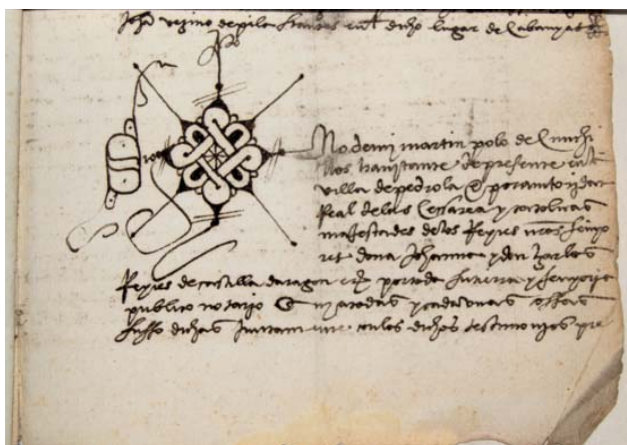 Johan vezino de pila havides en el dicho lugar de Cabanyas
Sig no de mi martin polo de Cunchi
llos havitante de presente en la
villa de pedrola e por auctoridat
Real de las Cessarea y catolicas
magestades de los Reyes nros senyo
res dona Johanna y don Karlos
Reyes de castilla daragon etc por toda su tierra y senyoria
publico notario e a todas y cada unas cossas
susso dichas juntamente con los dichos testimonios pre